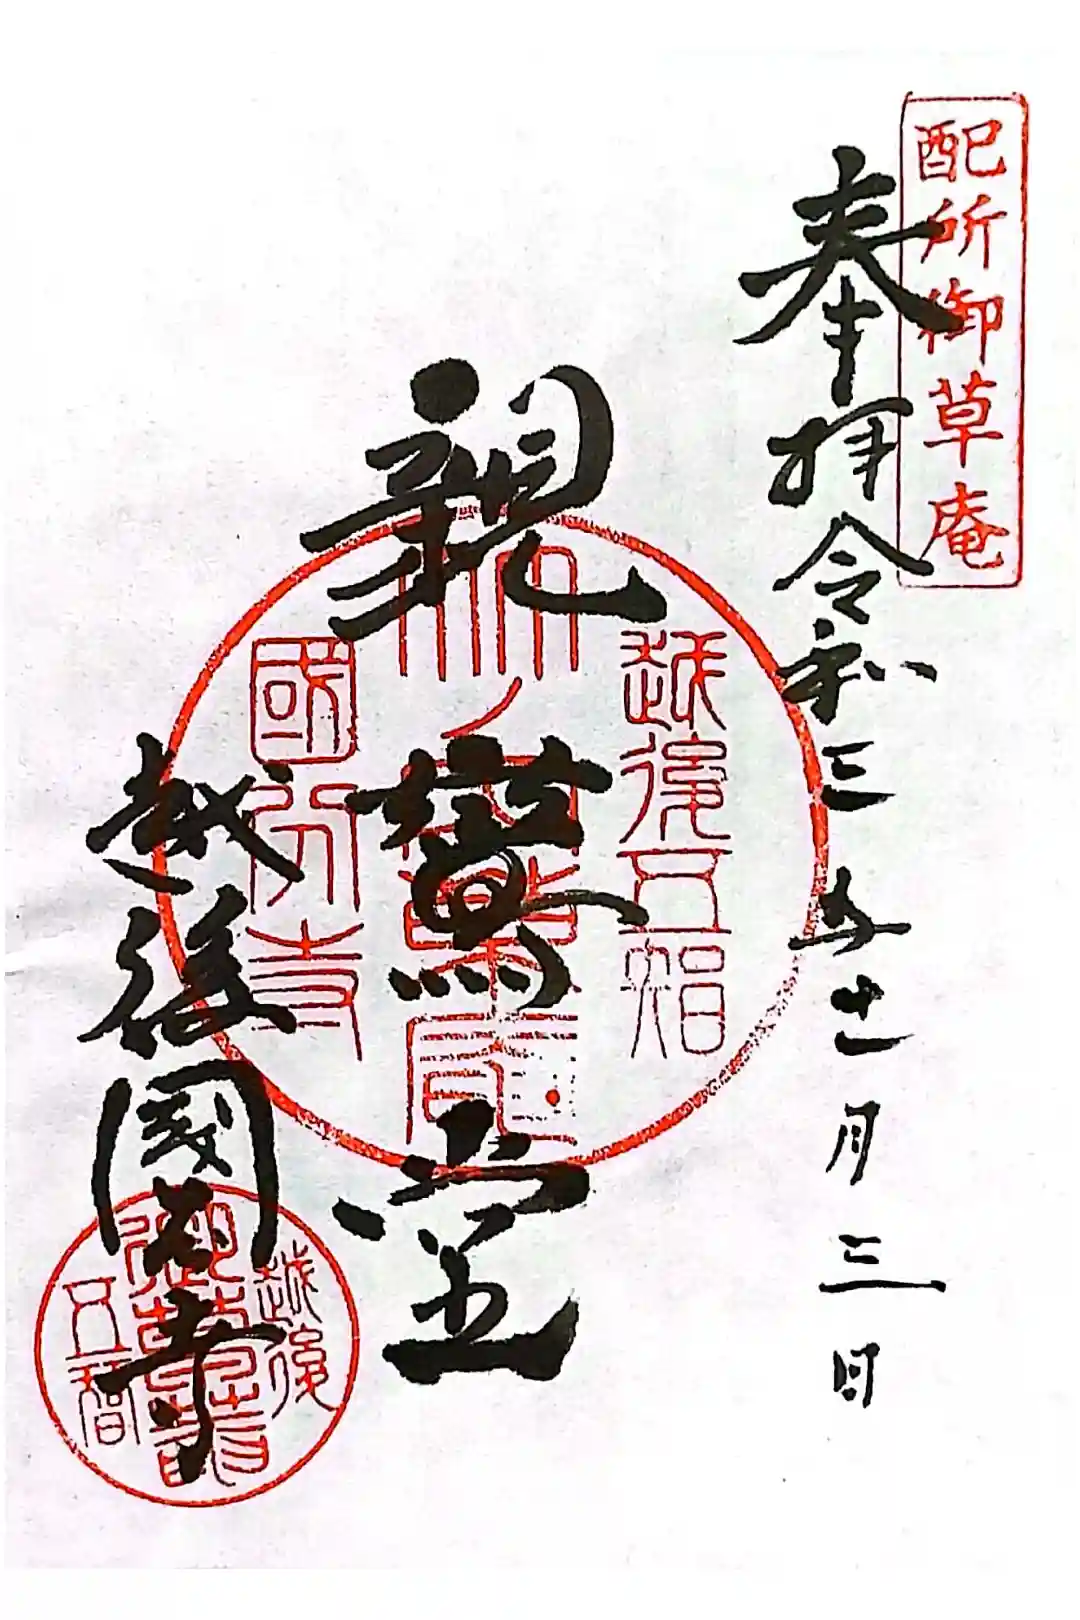 配所御草庵
奉拝令和三年十一月三日
親鸞堂
越後国分寺
越後五智
竹ノ内草庵
國分寺
越後
五智